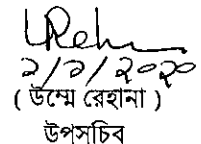 ২/১/২০২০
( উম্মে রেহানা )
উপসচিব